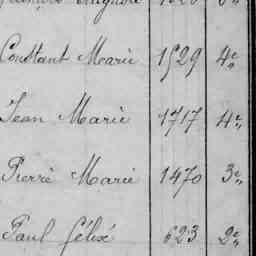 Constant Marie 1529 4e
Jean Marie 1717 4e
Pierre Marie 1470 3e
Paul Félix 623 2e